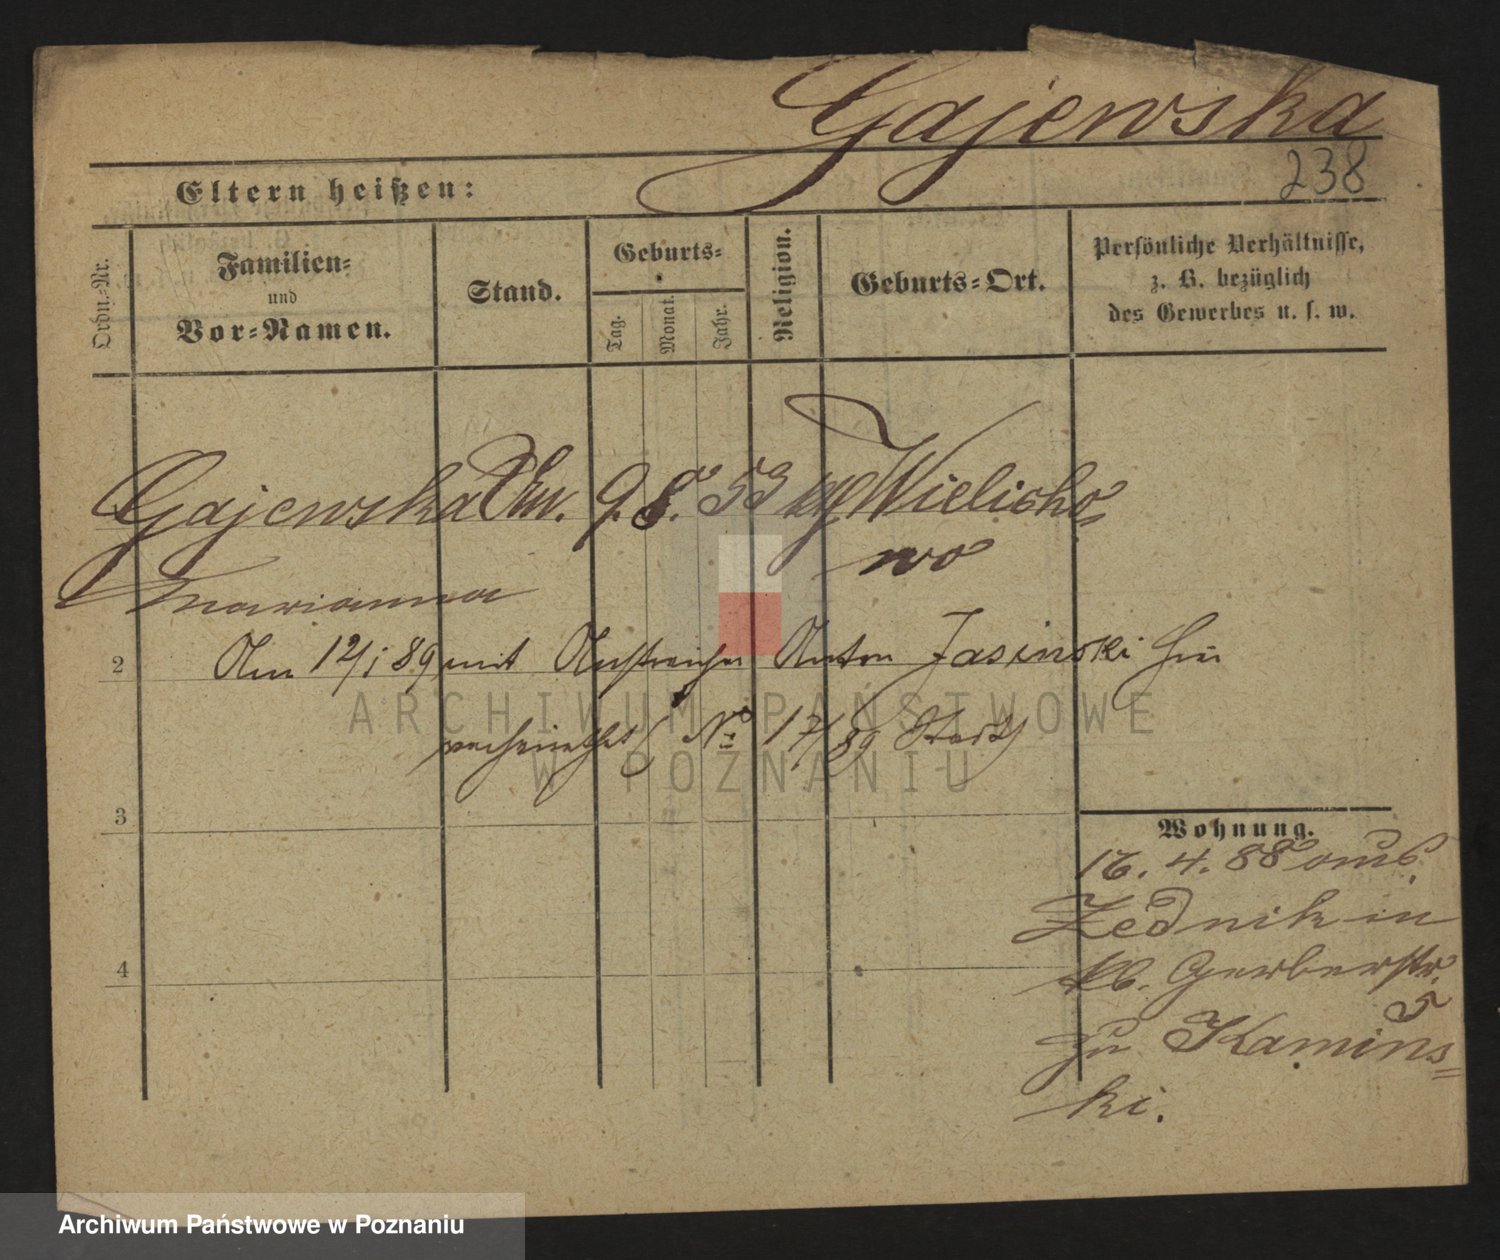 Gajewska
238
Eltern heißen:
Ordn.-Nr.
Familien-
und
Vor-Namen.
Stand.
Geburts-
Tag.
Monat.
Jahr.
Religion.
Geburts-Ort.
Persönliche Verhältnisse,
z. B. bezüglich
des Gewerbes u. s. w.
Gajewska 9. 8. 53 Wielicho-
wo
Marianna
2
Am 12/1 89 mit Anton Jasinski hier
No 17/89 Stadt
3
Wohnung.
16. 4. 88 aus
Zednik in
4
kl. Gerberstr.
5
zu Kamińs-
ki.
ARCHIWUM PAŃSTWOWE
W POZNANIU
Archiwum Państwowe w Poznaniu